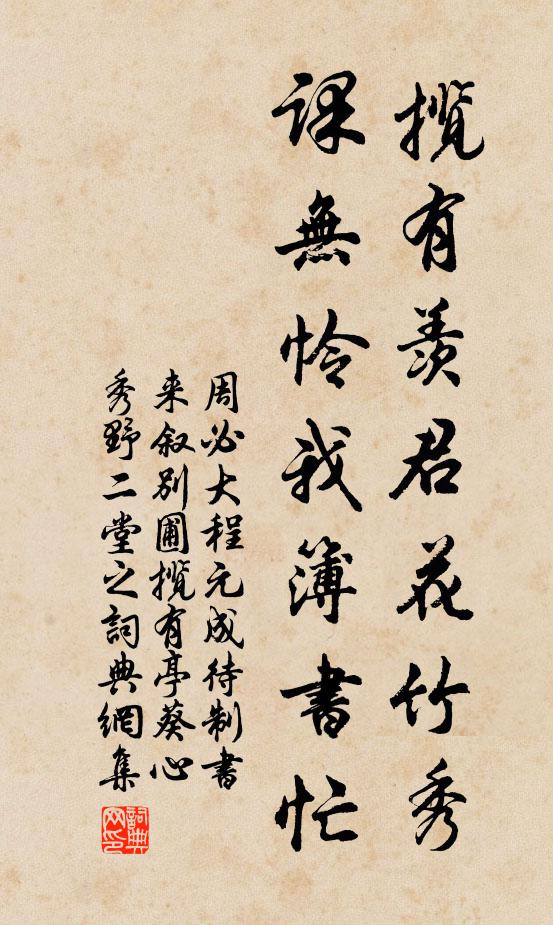 攬有羨君花竹秀
課無怜我簿書忙
周必大程元成待制書
来叙別圃攬有亭葵心
秀野二堂之詞典網集
詞典网印